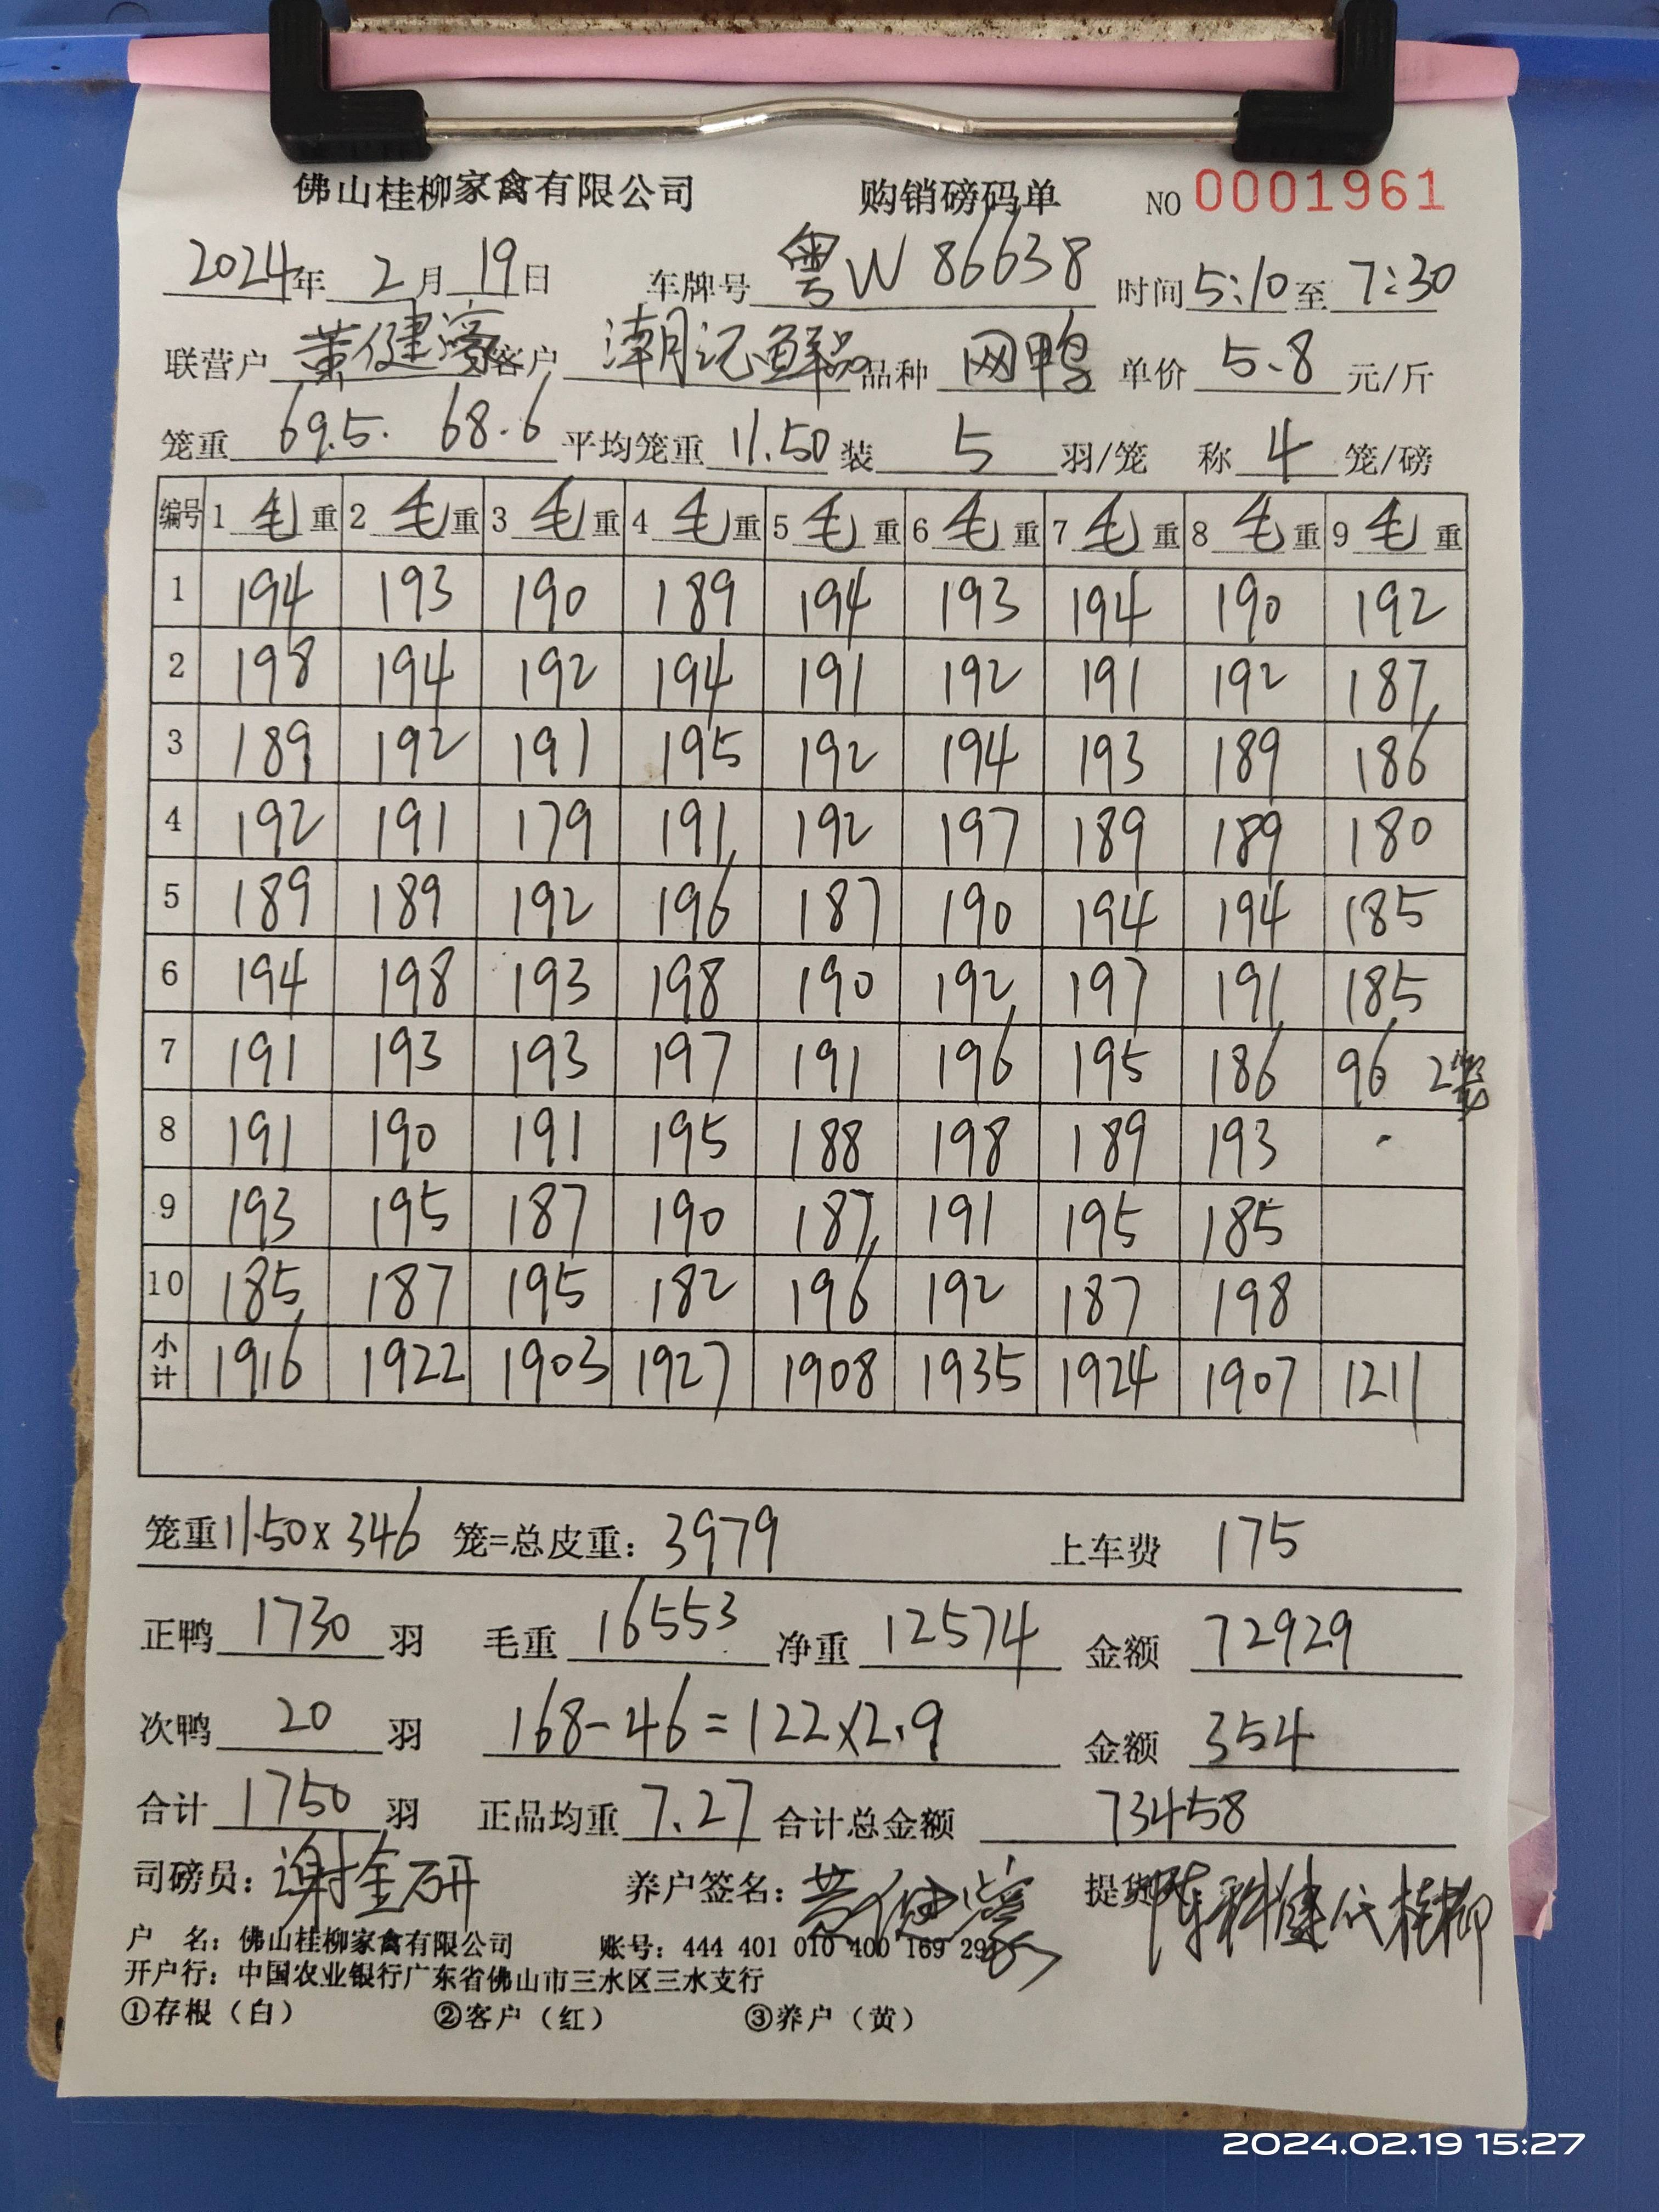 佛山桂柳家禽有限公司 购销磅码单 NO 0001961
2024年 2月 19日 车牌号 粤W 86638 时间 5:10 至 7:30
联营户 黄健濠 客户 潮记鲜品 品种 网鸭 单价 5.8 元/斤
笼重 69.5. 68.6 平均笼重 11.50 装 5 羽/笼 称 4 笼/磅
编号 1 毛重 2 毛重 3 毛重 4 毛重 5 毛重 6 毛重 7 毛重 8 毛重 9 毛重
1 194 193 190 189 194 193 194 190 192
2 198 194 192 194 191 192 191 192 187
3 189 192 191 195 192 194 193 189 186
4 192 191 179 191 192 197 189 189 180
5 189 189 192 196 187 190 194 194 185
6 194 198 193 198 190 192 197 191 185
7 191 193 193 197 191 196 195 186 96 2笼
8 191 190 191 195 188 198 189 193
9 193 195 187 190 187 191 195 185
10 185 187 195 182 196 192 187 198
小计 1916 1922 1903 1927 1908 1935 1924 1907 1211
笼重 11.50 x 346 笼=总皮重: 3979 上车费 175
正鸭 1730 羽 毛重 16553 净重 12574 金额 72929
次鸭 20 羽 168-46=122x2.9 金额 354
合计 1750 羽 正品均重 7.27 合计总金额 73458
司磅员: 谢金研 养户签名: 黄健濠 提货 陈科健代桂柳
户 名: 佛山桂柳家禽有限公司 账号: 444 401 010 400 169 29
开户行: 中国农业银行广东省佛山市三水区三水支行
①存根（白） ②客户（红） ③养户（黄）
2024.02.19 15:27